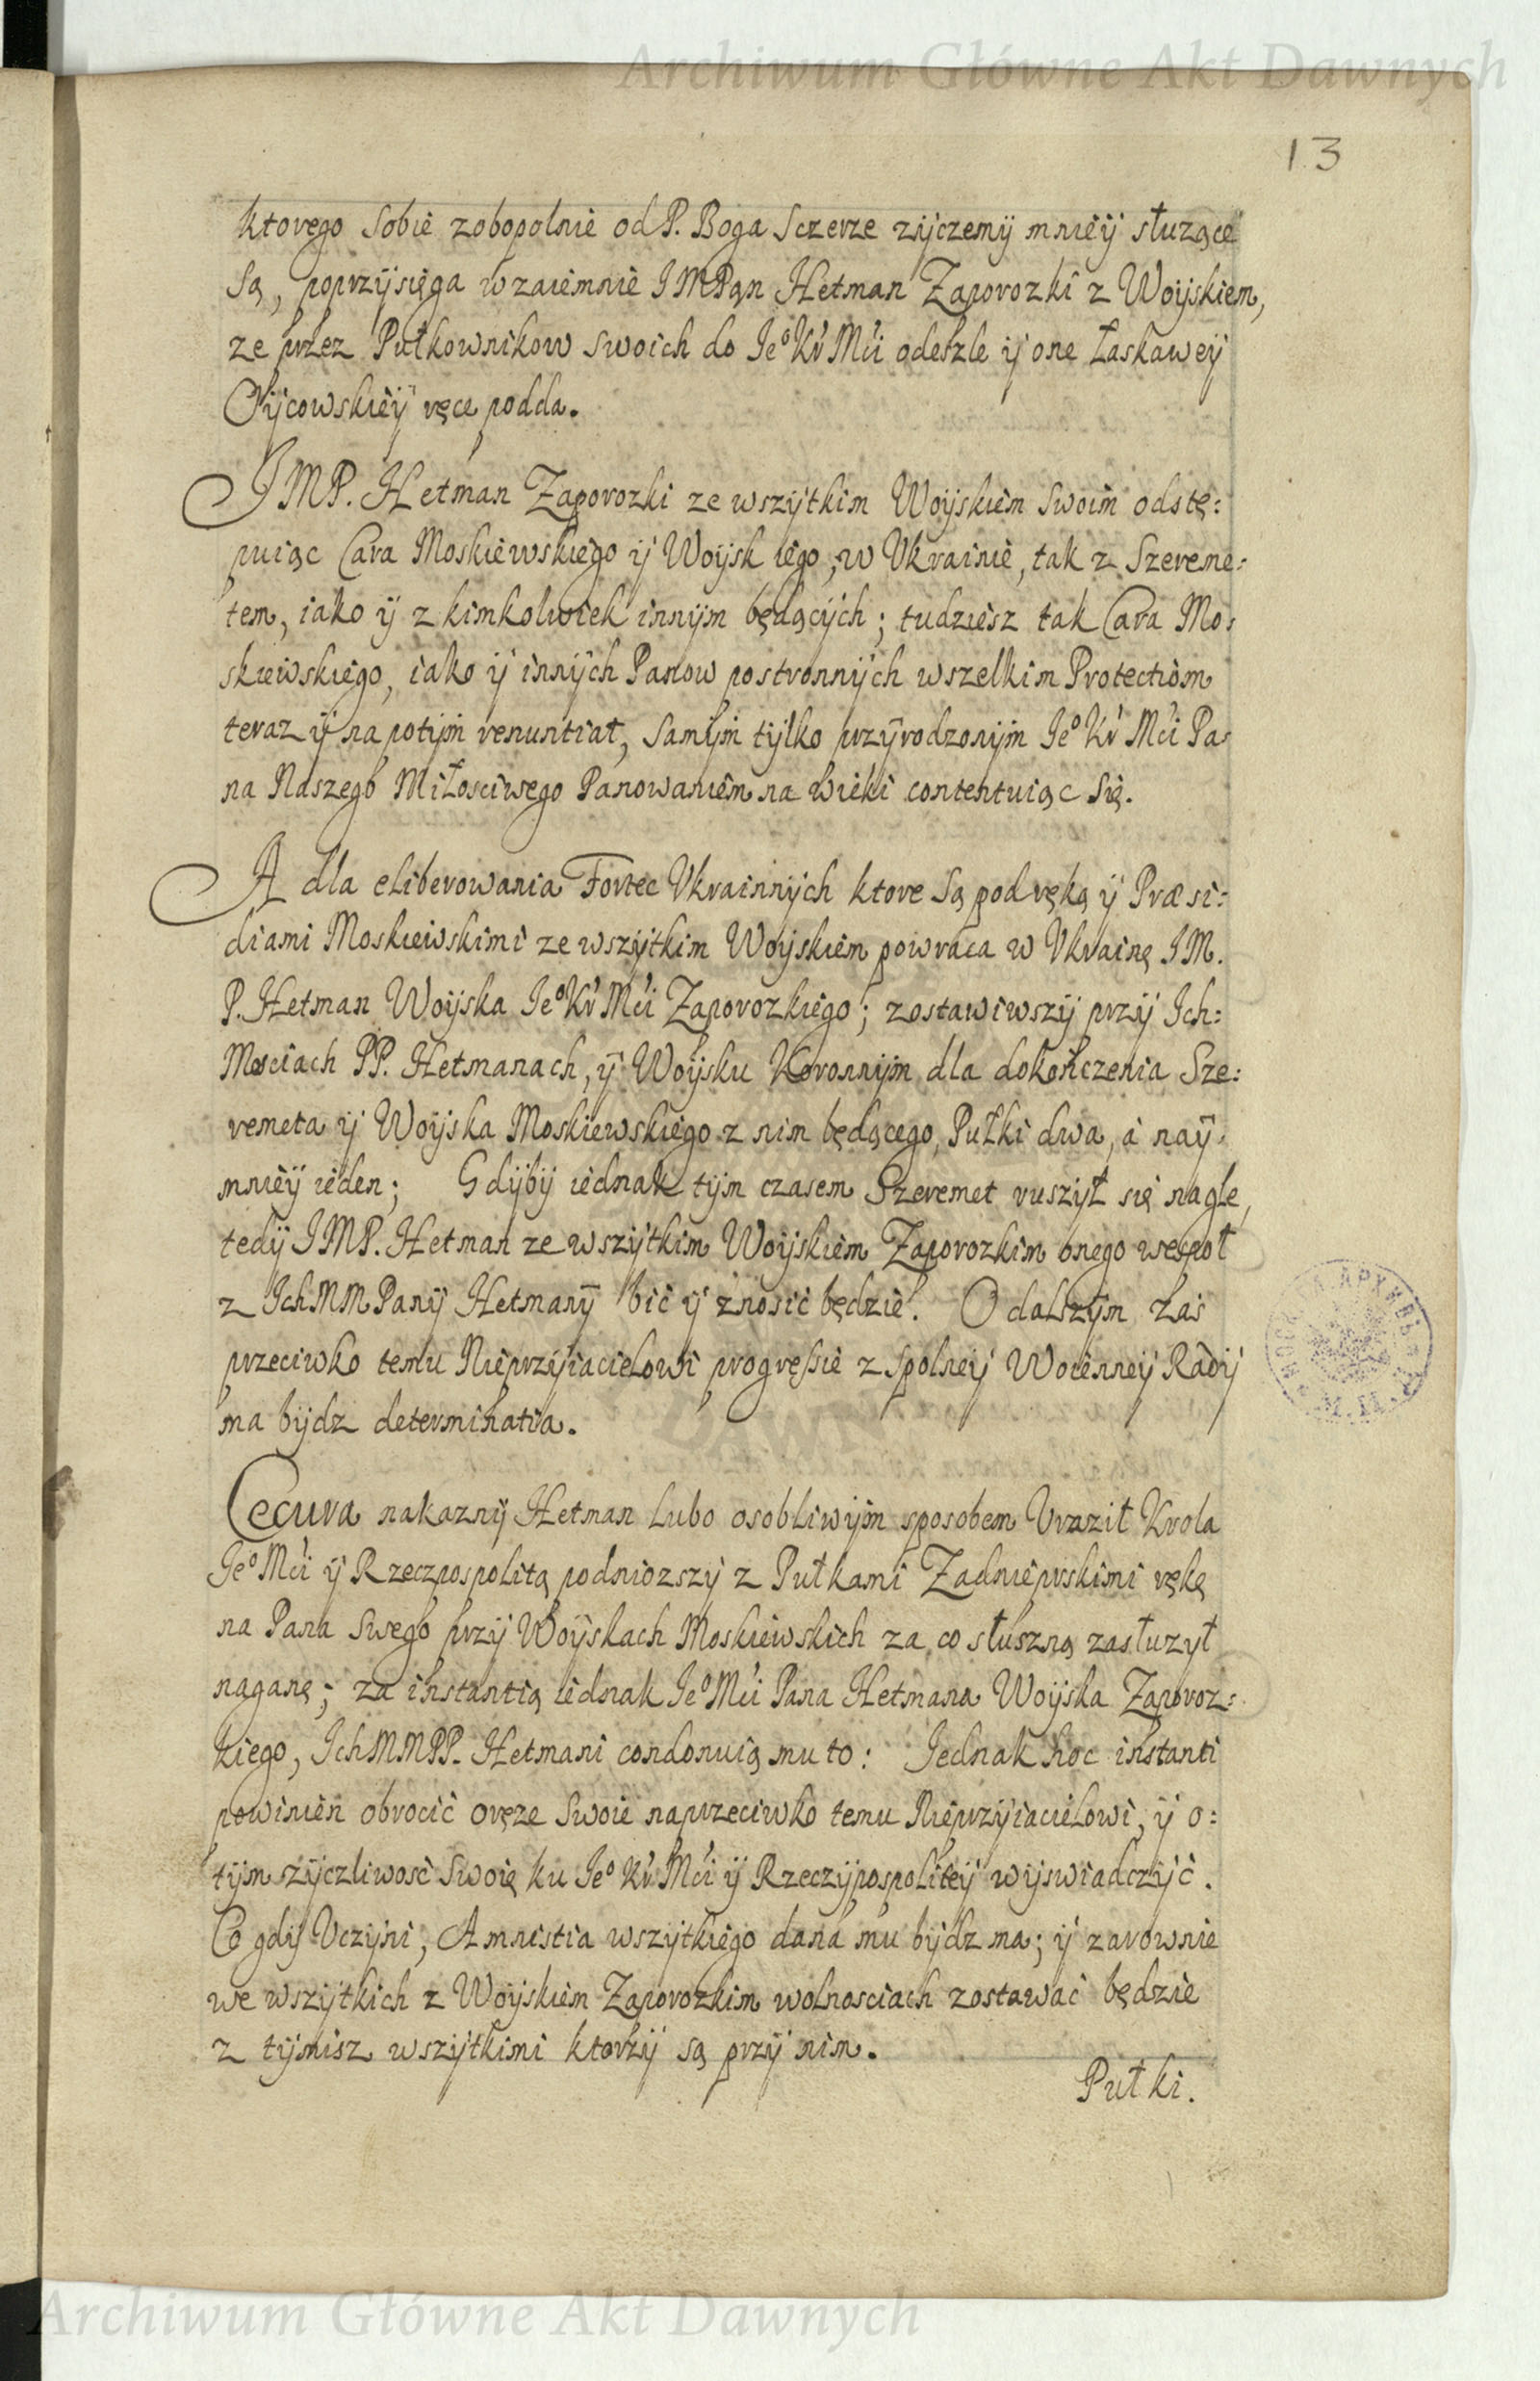 Archiwum Główne Akt Dawnych
13
ktorego Sobie zobopolnie od P. Boga Sczerze zÿczemÿ mnieÿ służące
Są, poprzÿsięga wzaiemnie IMPan Hetman Zaporozki z Woÿskiem,
ze przez Pułkownikow Swoich do Jeº Kr Mći odeszle ÿ one łaskaweÿ
Oÿcowskieÿ ręce podda.
IMP. Hetman Zaporozki ze wszÿtkim Woÿskiem Swoim odstę:
puiąc Cara Moskiewskiego ÿ Woÿsk iego, w Vkrainie, tak z Szereme:
tem, iako ÿ z kimkolwiek innÿm będącÿch; tudziesz tak Cara Mo:
skiewskiego, iako ÿ innÿch Panow postronnÿch wszelkim Protectiom
teraz ÿ na potÿm renuntiat, Samÿm tÿlko przÿrodzonÿm Jeº Kr Mći Pa:
na Naszego Miłosciwego Panowaniem na wieki contentuiąc Się.
A dla eliberowania Fortec Vkrainnÿch ktore Są pod ręką ÿ Præsi:
diami Moskiewskimi ze wszÿtkim Woÿskiem powraca w Vkrainę IM.
P. Hetman Woÿska Jeº Kr Mći Zaporozkiego; zostawiwszÿ przÿ Ich:
Mosciach PP. Hetmanach, ÿ Woÿsku Koronnÿm dla dokończenia Sze:
remeta ÿ Woÿska Moskiewskiego z nim będącego, Pułki dwa, a naÿ:
mnieÿ ieden; Gdÿbÿ iednak tÿm czasem Szeremet ruszÿł się nagle,
tedÿ IMP. Hetman ze wszÿtkim Woÿskiem Zaporozkim onego wespoł
z IchMMPanÿ Hetmanÿ bić ÿ znosić będzie. O dalszÿm zaś
przeciwko temu Nieprzÿiacielowi progressie z spolneÿ Woienneÿ Radÿ
ma bÿdz determinatia.
Cecura nakaznÿ Hetman Lubo osobliwÿm sposobem Vraził Krola
Jeº Mći ÿ Rzeczpospolitą podniozszÿ z Pułkami Zadnieprskimi rękę
na Pana Swego przÿ Woÿskach Moskiewskich za co słuszną zasłuzył
naganę; za instantią iednak Jeº Mći Pana Hetmana Woÿska Zaporoz:
kiego, IchMMPP. Hetmani condonuią mu to: Jednak hoc instanti
powinien obrocić oręze Swoie naprzeciwko temu Nieprzÿiacielowi, ÿ o:
tÿm szÿczliwość Swoię ku Jeº Kr Mći ÿ Rzeczÿpospoliteÿ wÿswiadczÿć.
Co gdÿ Vczÿni, Amnistia wszÿtkiego dana mu bÿdz ma; ÿ zarownie
we wszÿtkich z Woÿskiem Zaporozkim wolnosciach zostawać będzie
z tÿmisz wszÿtkimi ktorzÿ są przÿ nim.
Pułki.
Archiwum Główne Akt Dawnych